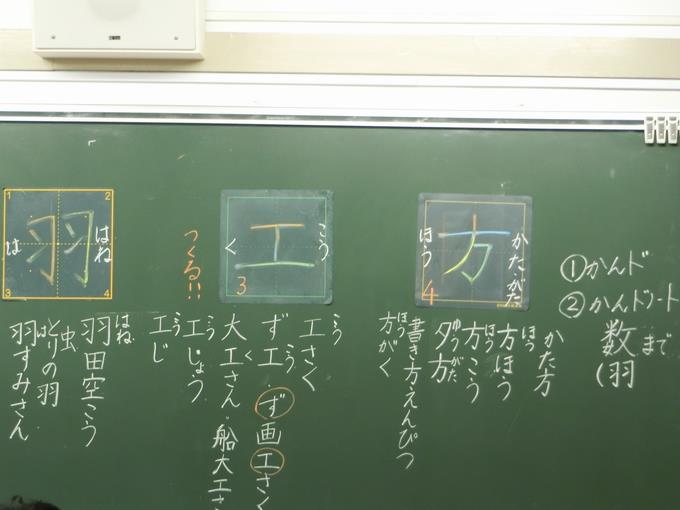 ①かんド
②かんドノート
数まで
(羽
方
かた、がた
ほう
4
かた方
方ほう
ほう
方こう
ほう
夕方
ゆうがた
書き方えんぴつ
方がく
ほう
工
こう
く
3
つくる!!
工さく
こう
ず工・ず画工さく
こう
大工さん・船大工さ
く
工じょう
こう
工じ
こう
羽
はね
は
1
2
3
4
羽田空こう
はね
虫
とりの羽
羽すみさん